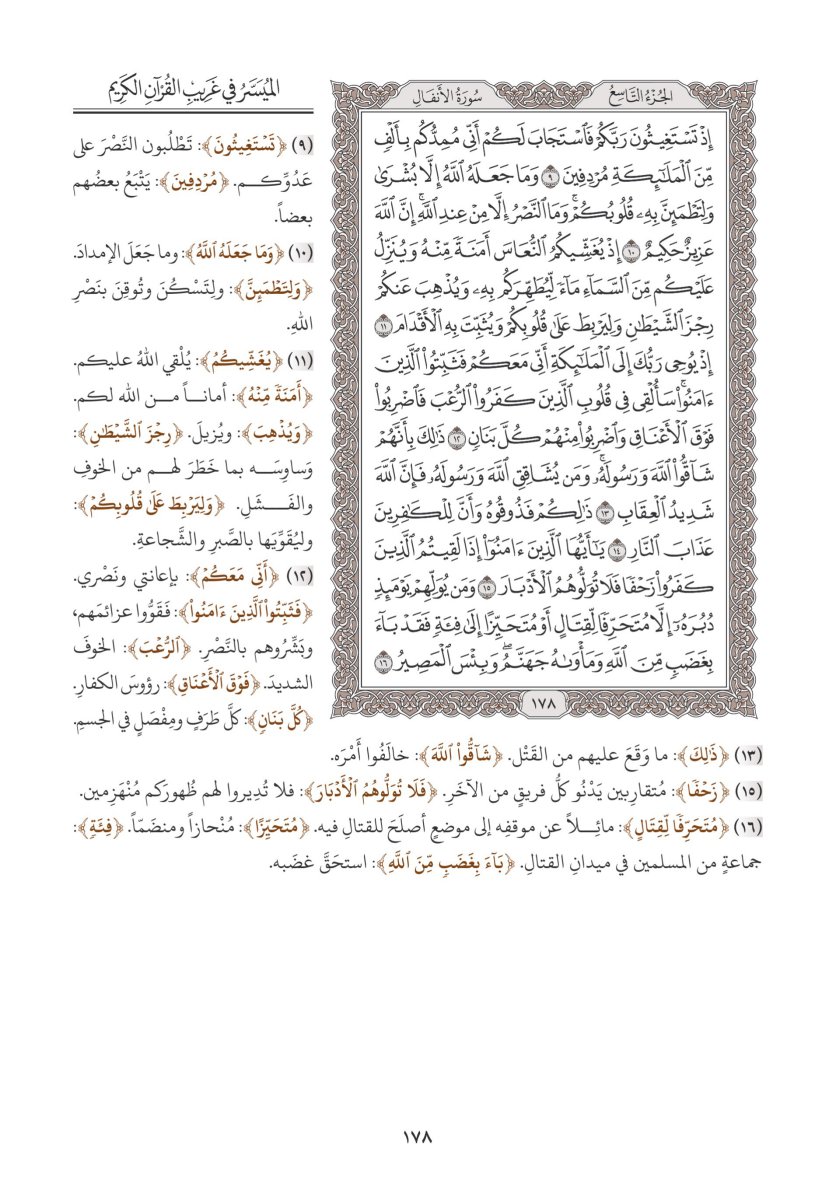 الجزء التاسع
سورة الأنفال
إِذْ تَسْتَغِيثُونَ رَبَّكُمْ فَٱسْتَجَابَ لَكُمْ أَنِّي مُمِدُّكُم بِأَلْفٍ
مِّنَ ٱلْمَلَٰٓئِكَةِ مُرْدِفِينَ ٩ وَمَا جَعَلَهُ ٱللَّهُ إِلَّا بُشْرَىٰ
وَلِتَطْمَئِنَّ بِهِۦ قُلُوبُكُمْۚ وَمَا ٱلنَّصْرُ إِلَّا مِنْ عِندِ ٱللَّهِۚ إِنَّ ٱللَّهَ
عَزِيزٌ حَكِيمٌ ١٠ إِذْ يُغَشِّيكُمُ ٱلنُّعَاسَ أَمَنَةً مِّنْهُ وَيُنَزِّلُ
عَلَيْكُم مِّنَ ٱلسَّمَآءِ مَآءً لِّيُطَهِّرَكُم بِهِۦ وَيُذْهِبَ عَنكُمْ
رِجْزَ ٱلشَّيْطَٰنِ وَلِيَرْبِطَ عَلَىٰ قُلُوبِكُمْ وَيُثَبِّتَ بِهِ ٱلْأَقْدَامَ ١١
إِذْ يُوحِي رَبُّكَ إِلَى ٱلْمَلَٰٓئِكَةِ أَنِّي مَعَكُمْ فَثَبِّتُوا۟ ٱلَّذِينَ
ءَامَنُوا۟ۚ سَأُلْقِي فِي قُلُوبِ ٱلَّذِينَ كَفَرُوا۟ ٱلرُّعْبَ فَٱضْرِبُوا۟
فَوْقَ ٱلْأَعْنَاقِ وَٱضْرِبُوا۟ مِنْهُمْ كُلَّ بَنَانٍ ١٢ ذَٰلِكَ بِأَنَّهُمْ
شَآقُّوا۟ ٱللَّهَ وَرَسُولَهُۥۚ وَمَن يُشَاقِقِ ٱللَّهَ وَرَسُولَهُۥ فَإِنَّ ٱللَّهَ
شَدِيدُ ٱلْعِقَابِ ١٣ ذَٰلِكُمْ فَذُوقُوهُ وَأَنَّ لِلْكَٰفِرِينَ
عَذَابَ ٱلنَّارِ ١٤ يَٰٓأَيُّهَا ٱلَّذِينَ ءَامَنُوٓا۟ إِذَا لَقِيتُمُ ٱلَّذِينَ
كَفَرُوا۟ زَحْفًا فَلَا تُوَلُّوهُمُ ٱلْأَدْبَارَ ١٥ وَمَن يُوَلِّهِمْ يَوْمَئِذٍ
دُبُرَهُۥٓ إِلَّا مُتَحَرِّفًا لِّقِتَالٍ أَوْ مُتَحَيِّزًا إِلَىٰ فِئَةٍ فَقَدْ بَآءَ
بِغَضَبٍ مِّنَ ٱللَّهِ وَمَأْوَىٰهُ جَهَنَّمُۖ وَبِئْسَ ٱلْمَصِيرُ ١٦
١٧٨
الميسر في غريب القرآن الكريم
(٩) ﴿تَسْتَغِيثُونَ﴾: تَطْلُبون النَّصْرَ على
عَدُوِّكـم. ﴿مُرْدِفِينَ﴾: يَتْبَعُ بعضُهم
بعضاً.
(١٠) ﴿وَمَا جَعَلَهُ ٱللَّهُ﴾: وما جَعَلَ الإمدادَ.
﴿وَلِتَطْمَئِنَّ﴾: ولِتَسْكُنَ وتُوقِنَ بنَصْرِ
اللهِ.
(١١) ﴿يُغَشِّيكُمُ﴾: يُلْقي اللهُ عليكم.
﴿أَمَنَةً مِّنْهُ﴾: أماناً من الله لكم.
﴿وَيُذْهِبَ﴾: ويُزيلَ. ﴿رِجْزَ ٱلشَّيْطَٰنِ﴾:
وَساوِسَه بما خَطَرَ لهم من الخوفِ
والفَشَلِ. ﴿وَلِيَرْبِطَ عَلَىٰ قُلُوبِكُمْ﴾:
وليُقَوِّيَها بالصَّبرِ والشَّجاعةِ.
(١٢) ﴿أَنِّي مَعَكُمْ﴾: بإعانتي ونَصْري.
﴿فَثَبِّتُوا۟ ٱلَّذِينَ ءَامَنُوا۟﴾: فَقَوُّوا عزائمَهم،
وبَشِّرُوهم بالنَّصْرِ. ﴿ٱلرُّعْبَ﴾: الخوفَ
الشديدَ. ﴿فَوْقَ ٱلْأَعْنَاقِ﴾: رؤوسَ الكفارِ.
﴿كُلَّ بَنَانٍ﴾: كلَّ طَرَفٍ ومِفْصَلٍ في الجسمِ.
(١٣) ﴿ذَٰلِكَ﴾: ما وَقَعَ عليهم من القَتْل. ﴿شَآقُّوا۟ ٱللَّهَ﴾: خالَفُوا أَمْرَه.
(١٥) ﴿زَحْفًا﴾: مُتقارِبين يَدْنُو كلُّ فريقٍ من الآخَرِ. ﴿فَلَا تُوَلُّوهُمُ ٱلْأَدْبَارَ﴾: فلا تُدِيروا لهم ظُهورَكم مُنْهَزِمين.
(١٦) ﴿مُتَحَرِّفًا لِّقِتَالٍ﴾: مائـلاً عن موقفِه إلى موضعٍ أصلَحَ للقتالِ فيه. ﴿مُتَحَيِّزًا﴾: مُنْحازاً ومنضَمّاً. ﴿فِئَةٍ﴾:
جماعةٍ من المسلمين في ميدانِ القتالِ. ﴿بَآءَ بِغَضَبٍ مِّنَ ٱللَّهِ﴾: استحَقَّ غضَبه.
١٧٨